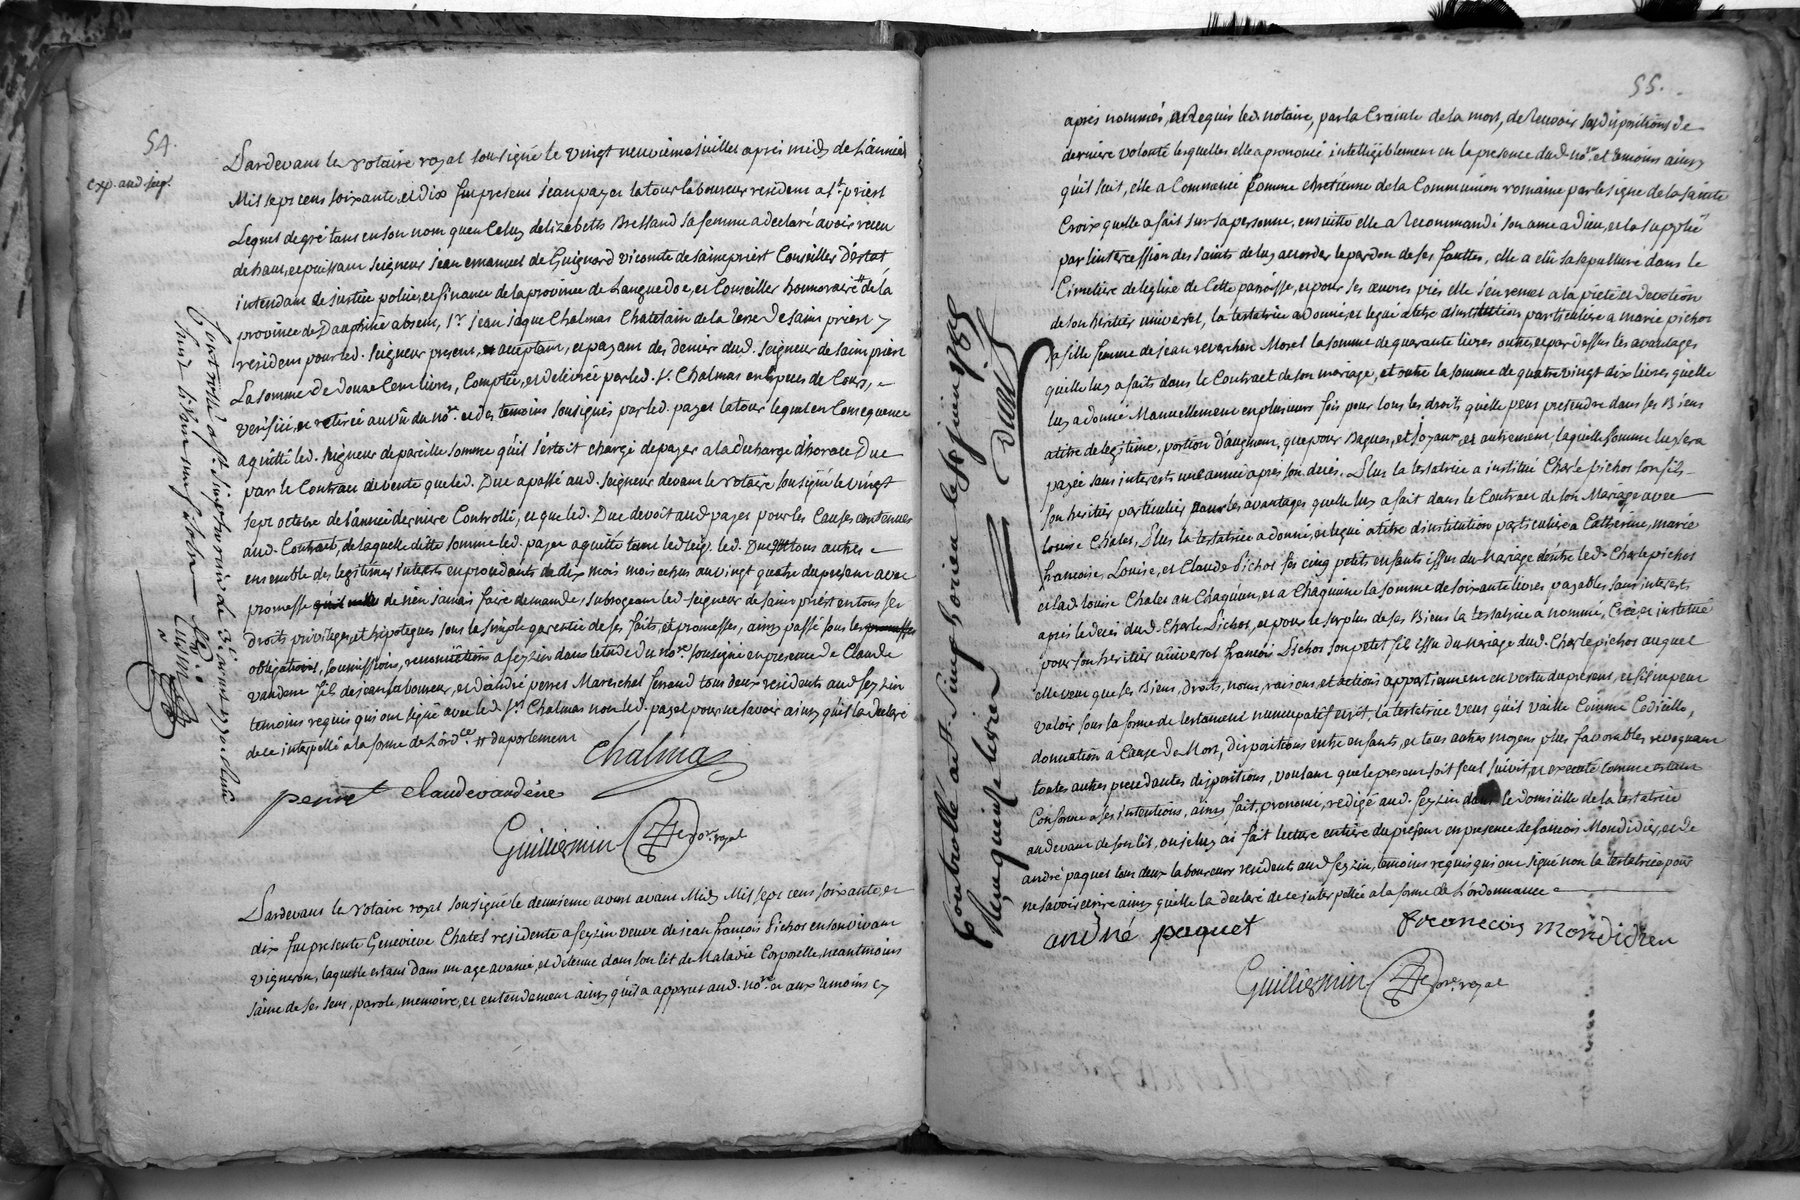 54.
exp. aud. seig.r
Pardevant le notaire royal soussigné le vingt neuvieme juillet après midy de l'année
Mil sept cens soixante, et dix fut present jean payet latour laboureur resident a st. priest
Lequel de gré tant en son nom qu'en celuy d'elizabeth Bressand sa femme a declaré avoir receu
de haut, et puissant seigneur jean emanuel de Guignard vicomte de saint priest Conseiller d'état
intendant de justice police, et finance de la province de Languedoc, et Conseiller honnoraire de la
province de Dauphiné absent, sr. jean jaque Chalmas Chatelain de la Terre de saint priest y
resident pour led. seigneur present, et acceptant, et payant des deniers dud. seigneur de saint priest
La somme de douze cent livres, comptée, et delivrée par led. sr. Chalmas en especes de cours,
verifiée, et retirée au vû du nore. et des temoins soussignés par led. payet latour lequel en consequence
a quitté led. seigneur de pareille somme qu'il s'étoit chargé de payer a la decharge d'horace Duc
par le Contract de vente que led. Duc a passé aud. seigneur devant le notaire soussigné le vingt
sept octobre de l'année derniere Controllé, et que led. Duc devoit aud. payet pour les causes contenues
aud. Contract, de laquelle ditte somme led. payet a quitté tant led. seigr. led. Duc tous autres
ensemble des legitimes interets en procedants de dix mois mois echus au vingt quatre du present avec
promesse de n'en jamais faire demande, subrogeant led. seigneur de saint priest en tous ses
droits privileges, et hipoteques sous la simple garentie de ses faits, et promesses, ainsy passé sous les promesses
obligations, soumissions, renonciations a feyzin dans l'etude du nore. soussigné en presence de Claude
vandene fils de jean laboureur, et d'andré perret Marechal ferrand tous deux residents aud. feyzin
temoins requis qui ont signé avec led. sr. Chalmas non led. payet pour ne savoir ainsy qu'il l'a declaré
de ce interpellé a la forme de l'ordce. du parlement
Chalmas
perret claudevandene
Guilliermin nore. royal
Controllé a st. simphorien le 31e juillet 1770
Pardevant le notaire royal soussigné le deuxieme aout avant Midy Mil sept cens soixante, et
dix fut presente Genevieve Chatel residente a feyzin veuve de jean françois Pichot en son vivant
vigneron, laquelle estant dans un age avancé, et detenue dans son lit de Maladie Corporelle, neantmoins
saine de ses sens, parole, memoire, et entendement ainsy qu'il a apparut aud. nore. et aux temoins cy
55.
après nommés, a requis led. notaire, par la crainte de la mort, de recevoir ses dispositions de
derniere volonté lesquelles elle a prononcé intelligiblement en la presence dud. nore. et temoins ainsy
qu'il suit, elle a commencé comme chretienne de la Communion romaine par le signe de la sainte
Croix qu'elle a fait sur sa personne, ensuitte elle a recommandé son ame a dieu, et la supplié
par l'intercession des saints de luy accorder le pardon de ses fauttes, elle a elû sa sepulture dans le
Cimetiere de l'eglise de cette paroisse, et pour ses œuvres pies elle s'en remet a la pieté et devotion
de son heritier universel, la testatrice a donné, et legué a titre d'institution particuliere a marie pichot
sa fille femme de jean reverchon Morel la somme de quarante livres outre, et par dessus les avantages
qu'elle luy a faits dans le Contract de son mariage, et outre la somme de quatre vingt dix livres qu'elle
luy a donné Manuellement en plusieurs fois pour tous les droits qu'elle peut pretendre dans ses Biens
a titre de legitime, portion d'augment, que pour Bagues, et joyaux, et autrement laquelle somme luy sera
payée sans interets une année après son decès. Plus la testatrice a institué Charle Pichot son fils
son heritier particulier dans les avantages qu'elle luy a fait dans le Contract de son Mariage avec
louise Chalet, Plus la testatrice a donné, et legué a titre d'institution particuliere a Catherine, marie
françoise, Louise, et Claude Pichot ses cinq petits enfants issus du mariage d'entre led. Charle pichot
et lad. louise Chalet au chaquun, et a chaquune la somme de soixante livres payables sans interets
après le decès dud. Charle Pichot, et pour le surplus de ses Biens la testatrice a nommé, Créé, et institué
pour son heritier universel françois Pichot son petit fils issu du mariage dud. Charle pichot auquel
elle veut que ses Biens, droits, noms, raisons, et actions appartiennent en vertu du present, et s'il ne peut
valoir sous la forme de testament nuncupatif ecrit, la testatrice veut qu'il vaille comme Codicille,
donnation a Cause de Mort, disposition entre enfants, et tous autres moyens plus favorables revoquant
toutes autres precedantes dispositions, voulant que le present soit seul suivit, et executé comme estant
Conforme a ses intentions, ainsy fait, prononcé, redigé aud. feyzin dans le domicille de la testatrice
au devant de son lit, ou je luy ai fait lecture entière du present en presence de françois Mondidier, et de
andré paquet tous deux laboureurs residents aud. feyzin, temoins requis qui ont signé non la testatrice pour
ne savoir ecrire ainsy qu'elle l'a declaré de ce interpellée a la forme de l'ordonnance
andré paquet francois mondidier
Guilliermin nore. royal
Controllé a st. simphorien le